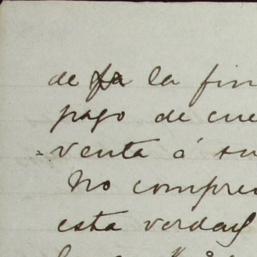 de la fin
pago de cue
venta á su
No compre
esta verdad